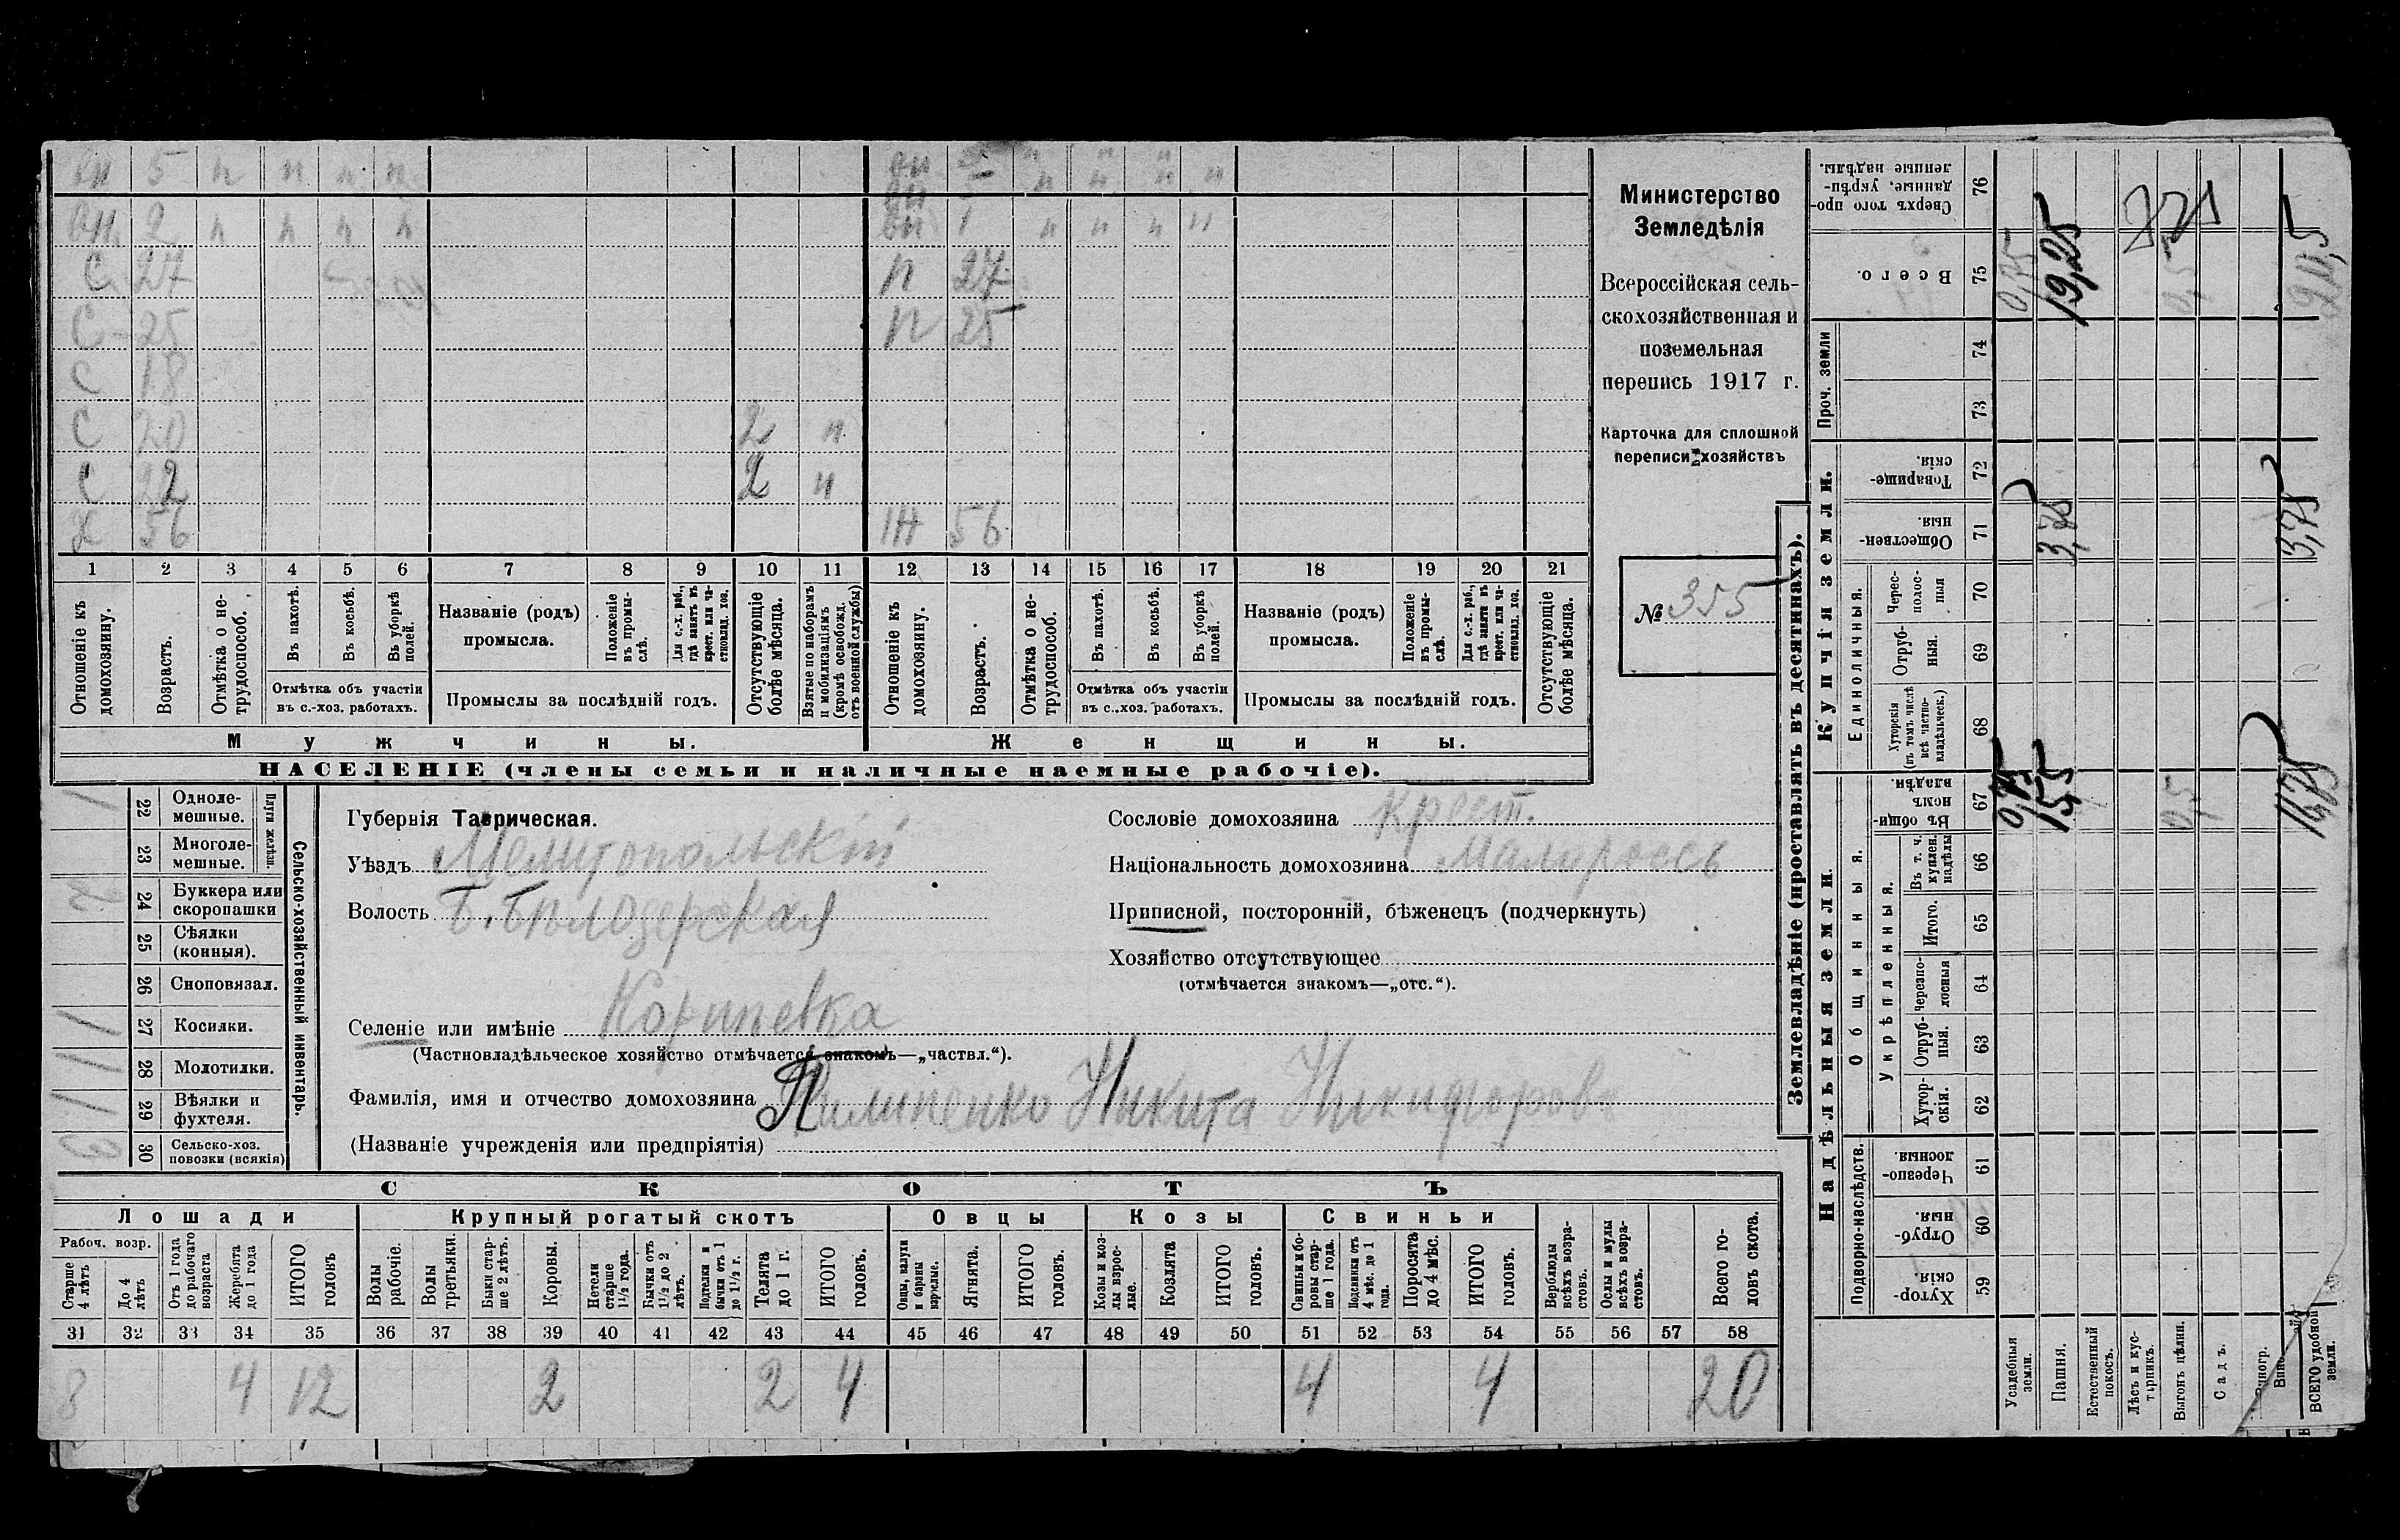 вн 5 н н н н вн 5 н н н н
вн 2 н н н н вн 1 н н н н
С 27 п 27
С 25 п 25
С 18
С 20 2 н
С 22 2 н
Х 56 ж 56
1 2 3 4 5 6 7 8 9 10 11 12 13 14 15 16 17 18 19 20 21
Отношеніе къ домохозяину.
Возрастъ.
Отмѣтка о не-
трудоспособ.
Въ пахотѣ.
Въ косьбѣ.
Въ уборкѣ полей.
Отмѣтка объ участіи
въ с.-хоз. работахъ.
Названіе (родъ)
промысла.
Положеніе въ промы-
слѣ.
Для с.-х. раб., гдѣ занятъ въ крест. или ча-
стновлад. хоз.
Промыслы за послѣдній годъ.
Отсутствующіе болѣе мѣсяца.
Взятые по наборамъ и мобилизаціямъ (кромѣ освобожд. отъ военной службы)
Отношеніе къ домохозяину.
Возрастъ.
Отмѣтка о не-
трудоспособ.
Въ пахотѣ.
Въ косьбѣ.
Въ уборкѣ полей.
Отмѣтка объ участіи
въ с.-хоз. работахъ.
Названіе (родъ)
промысла.
Положеніе въ промы-
слѣ.
Для с.-х. раб., гдѣ занятъ въ крест. или ча-
стновлад. хоз.
Промыслы за послѣдній годъ.
Отсутствующіе болѣе мѣсяца.
Мужчины.
Женщины.
НАСЕЛЕНІЕ (члены семьи и наличные наемные рабочіе).
Министерство
Земледѣлія
Всероссійская сель-
скохозяйственная и
поземельная
перепись 1917 г.
Карточка для сплошной
переписи хозяйствъ
№ 355
Сельско-хозяйственный инвентарь.
Плуги желѣзн.
22 Одноле-
мешные. 1
23 Многоле-
мешные.
24 Буккера или
скоропашки 2
25 Сѣялки
(конныя).
26 Сноповязал.
27 Косилки. 1
28 Молотилки. 1
29 Вѣялки и
фухтеля. 1
30 Сельско-хоз.
повозки (всякія) 3
Губернія Таврическая.
Уѣздъ Мелитопольскій
Волость Б. Бѣлозерская
Селеніе или имѣніе
(Частновладѣльческое хозяйство отмѣчается знакомъ—„частвл.“).
Фамилія, имя и отчество домохозяина Пилипенко Никита Никифоров
(Названіе учрежденія или предпріятія)
Сословіе домохозяина Крест.
Національность домохозяина Малуроссъ
Приписной, посторонній, бѣженецъ (подчеркнуть)
Хозяйство отсутствующее
(отмѣчается знакомъ—„отс.“).
СКОТЪ
Лошади
Крупный рогатый скотъ
Овцы
Козы
Свиньи
Рабоч. возр.
Старше 4 лѣтъ
До 4 лѣтъ
Отъ 1 года до рабочаго возраста
Жеребята до 1 года
ИТОГО головъ
Волы рабочіе.
Волы третьяки.
Быки стар-
ше 2 лѣтъ.
Коровы.
Нетели старше 1½ года.
Бычки отъ 1½ до 2 лѣтъ.
Подтелки и бычки отъ 1 до 1½ г.
Телята до 1 г.
ИТОГО головъ.
Овцы, валухи и бараны взрослые.
Ягнята.
ИТОГО головъ.
Козы и коз-
лы взрос-
лые.
Козлята
ИТОГО головъ.
Свиньи и бо-
ровы стар-
ше 1 года.
Подсвинки отъ 4 мѣс. до 1 года.
Поросята до 4 мѣс.
ИТОГО головъ.
Верблюды всѣхъ возра-
стовъ.
Ослы и мулы всѣхъ возра-
стовъ.
Всего го-
ловъ скота.
31 32 33 34 35 36 37 38 39 40 41 42 43 44 45 46 47 48 49 50 51 52 53 54 55 56 57 58
8 4 12 2 2 4 4 4 20
Землевладѣніе (проставлять въ десятинахъ).
Надѣльныя земли.
Купчія земли.
Проч. земли
Подворно-наслѣдств.
Общинныя.
Укрѣпленныя.
Единоличныя.
Сверхъ того про-
данные, укрѣп-
ленные надѣлы. 76
Всего. 75 0,75 19,25 0,5
74
73
Товарище-
скія. 72
Обществен-
ныя. 71 3,75 3,75
Черес-
полос-
ныя 70
Отруб-
ныя. 69
Хуторскія (въ томъ числѣ всѣ частно-
владѣльческ.) 68
Въ общин-
номъ
владѣн. 67 0,75 15,5 0,5 16,75
Въ т. ч. куплен. надѣлы 66
Итого. 65
Черезпо-
лосныя 64
Отруб-
ныя. 63
Хутор-
скія. 62
Черезпо-
лосныя 61
Отруб-
ныя. 60
Хутор-
скія. 59
Усадебныя земли.
Пашня.
Естественный покосъ.
Лѣсъ и кус-
тарникъ.
Выгонъ цѣлин.
Садъ.
ВСЕГО удобной земли.